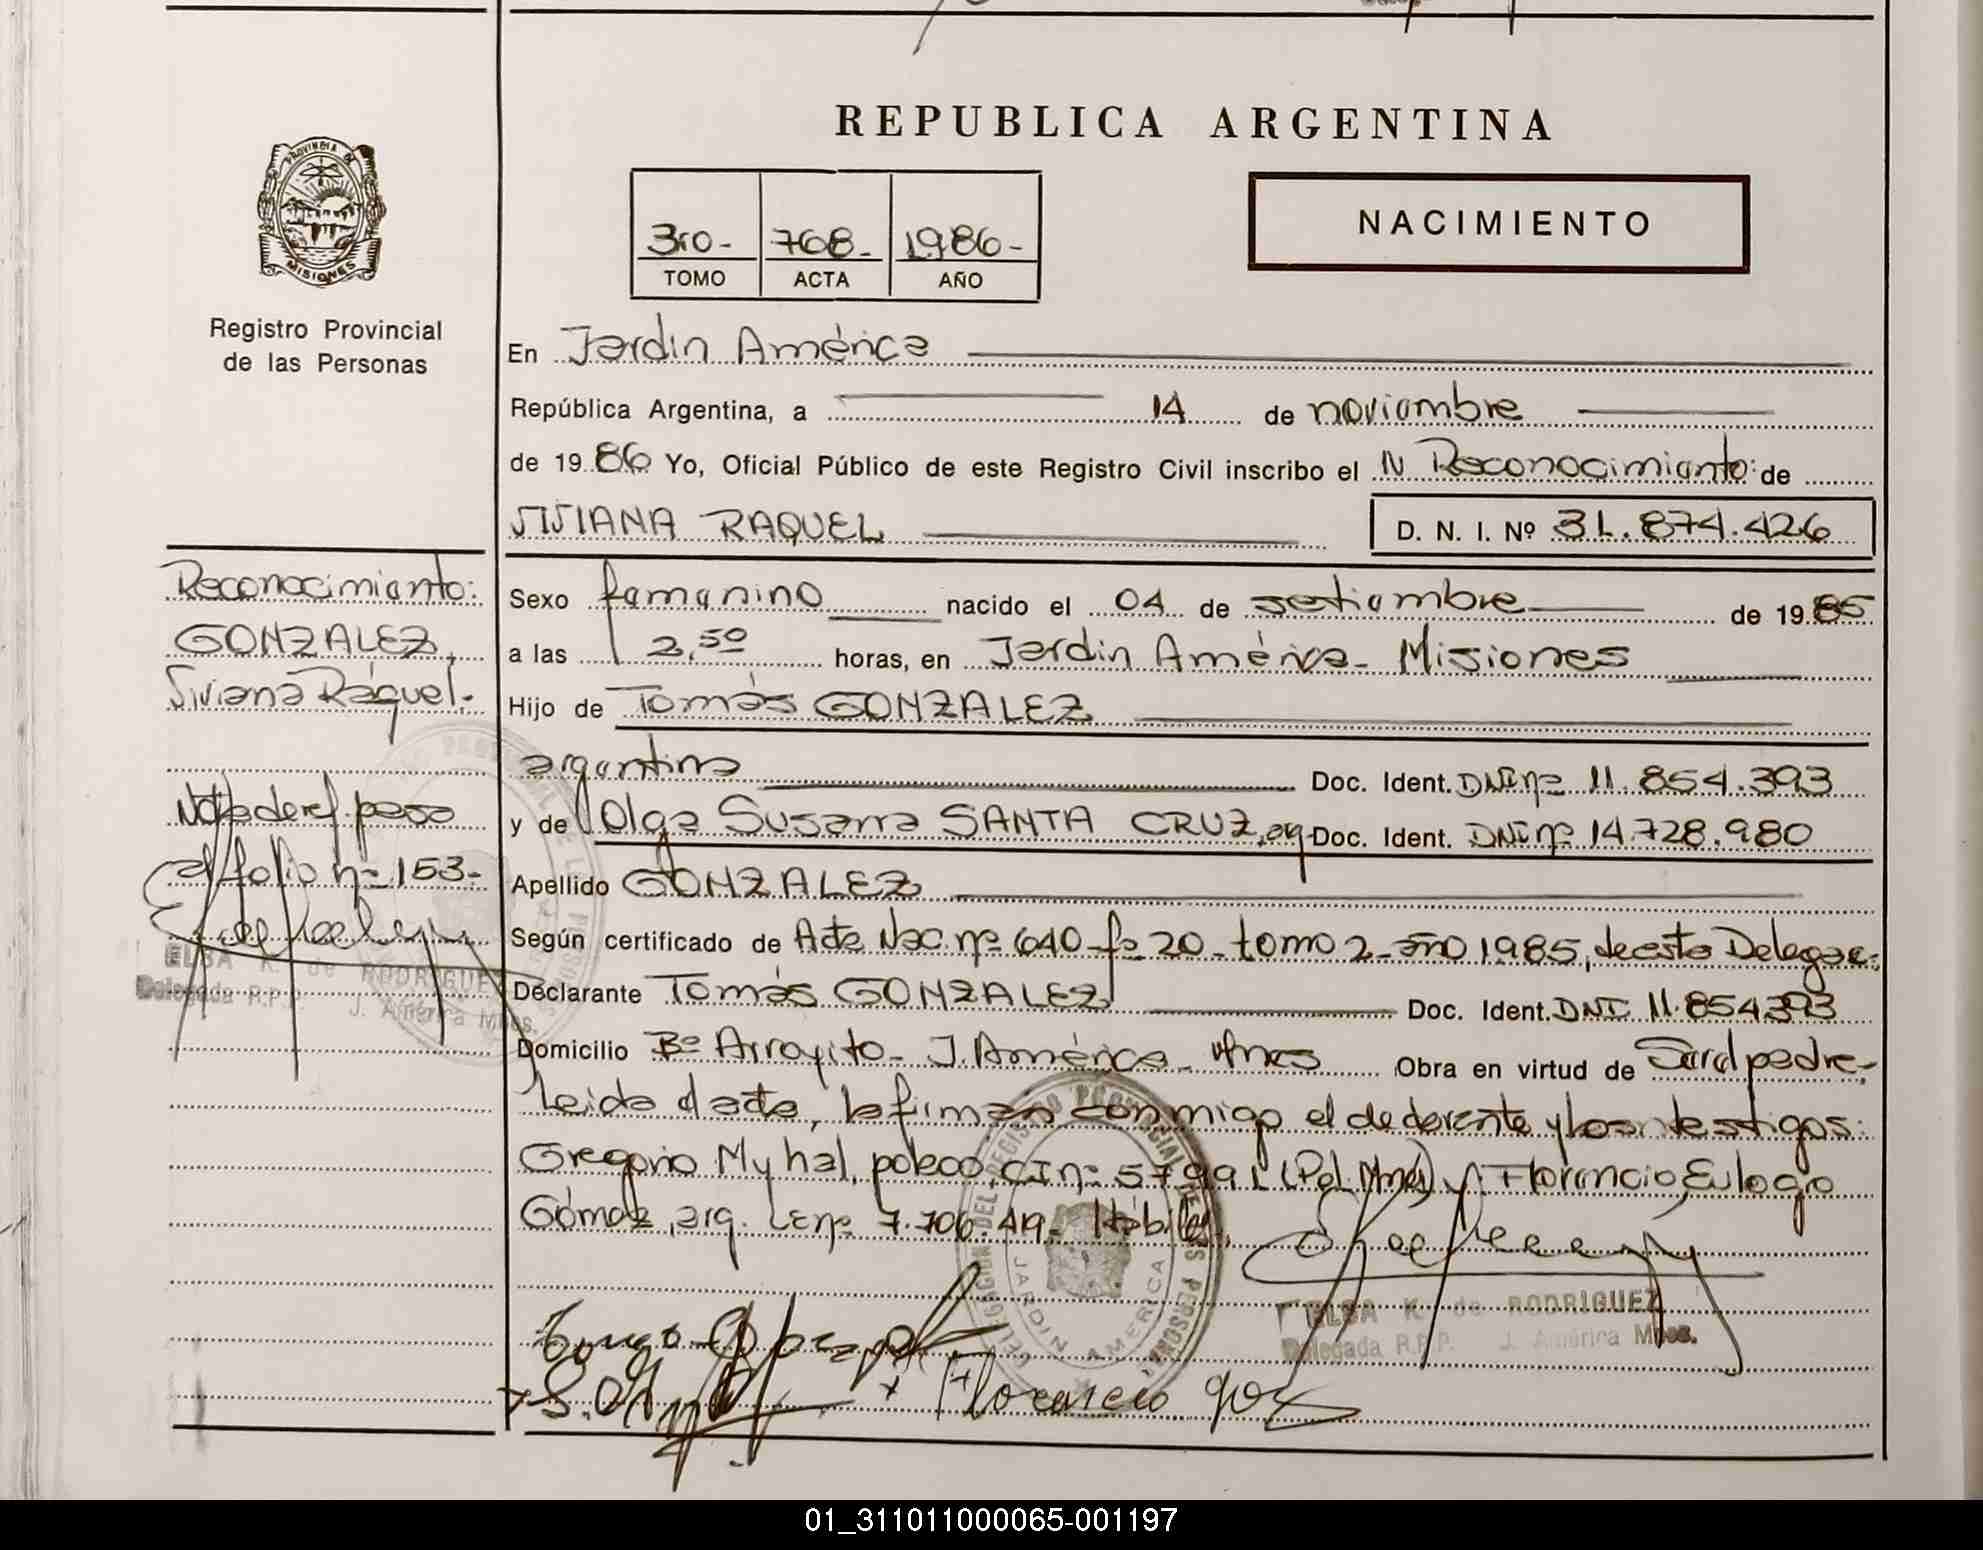 REPUBLICA ARGENTINA
PROVINCIA DE
MISIONES
Registro Provincial
de las Personas
3ro- 768- 1986-
TOMO ACTA AÑO
NACIMIENTO
En Jardín América
República Argentina, a 14 de noviembre
de 1986 Yo, Oficial Público de este Registro Civil inscribo el N Reconocimiento: de
VIVIANA RAQUEL D. N. I. Nº 31.874.426
Reconocimiento:
GONZALEZ,
Viviana Raquel.-
Sexo femenino nacido el 04 de setiembre de 1985
a las 2,50 horas, en Jardín América- Misiones
Hijo de Tomás GONZALEZ
argentina Doc. Ident. DNI nº 11.854.393
y de Olga Susana SANTA CRUZ, arg. Doc. Ident. DNI nº 14.728.980
Apellido GONZALEZ
Nota de ref. pasa
al folio nº 153-
ELSA K. de RODRIGUEZ
Delegada R.P.P. J. América Mnes.
Según certificado de Acta Nac. nº 640 fº 20- tomo 2- año 1985, de esta Delegac.
Declarante Tomás GONZALEZ Doc. Ident. DNI 11.854393
Domicilio Bº Arroyito- J. América- Mnes Obra en virtud de Ser el padre-
Leída el acta, la firman conmigo el declarante y los testigos:
Gregorio Myhal, polaco, CI nº 57991 (Pol. Mnes) y Florencio Eulogio
Gómez, arg. LE nº 7.706.419- Hábiles.
DELEGACION DEL REGISTRO PROVINCIAL DE LAS PERSONAS
JARDIN AMERICA
ELSA K. de RODRIGUEZ
Delegada R.P.P. J. América Mnes.
Florencio
01_311011000065-001197